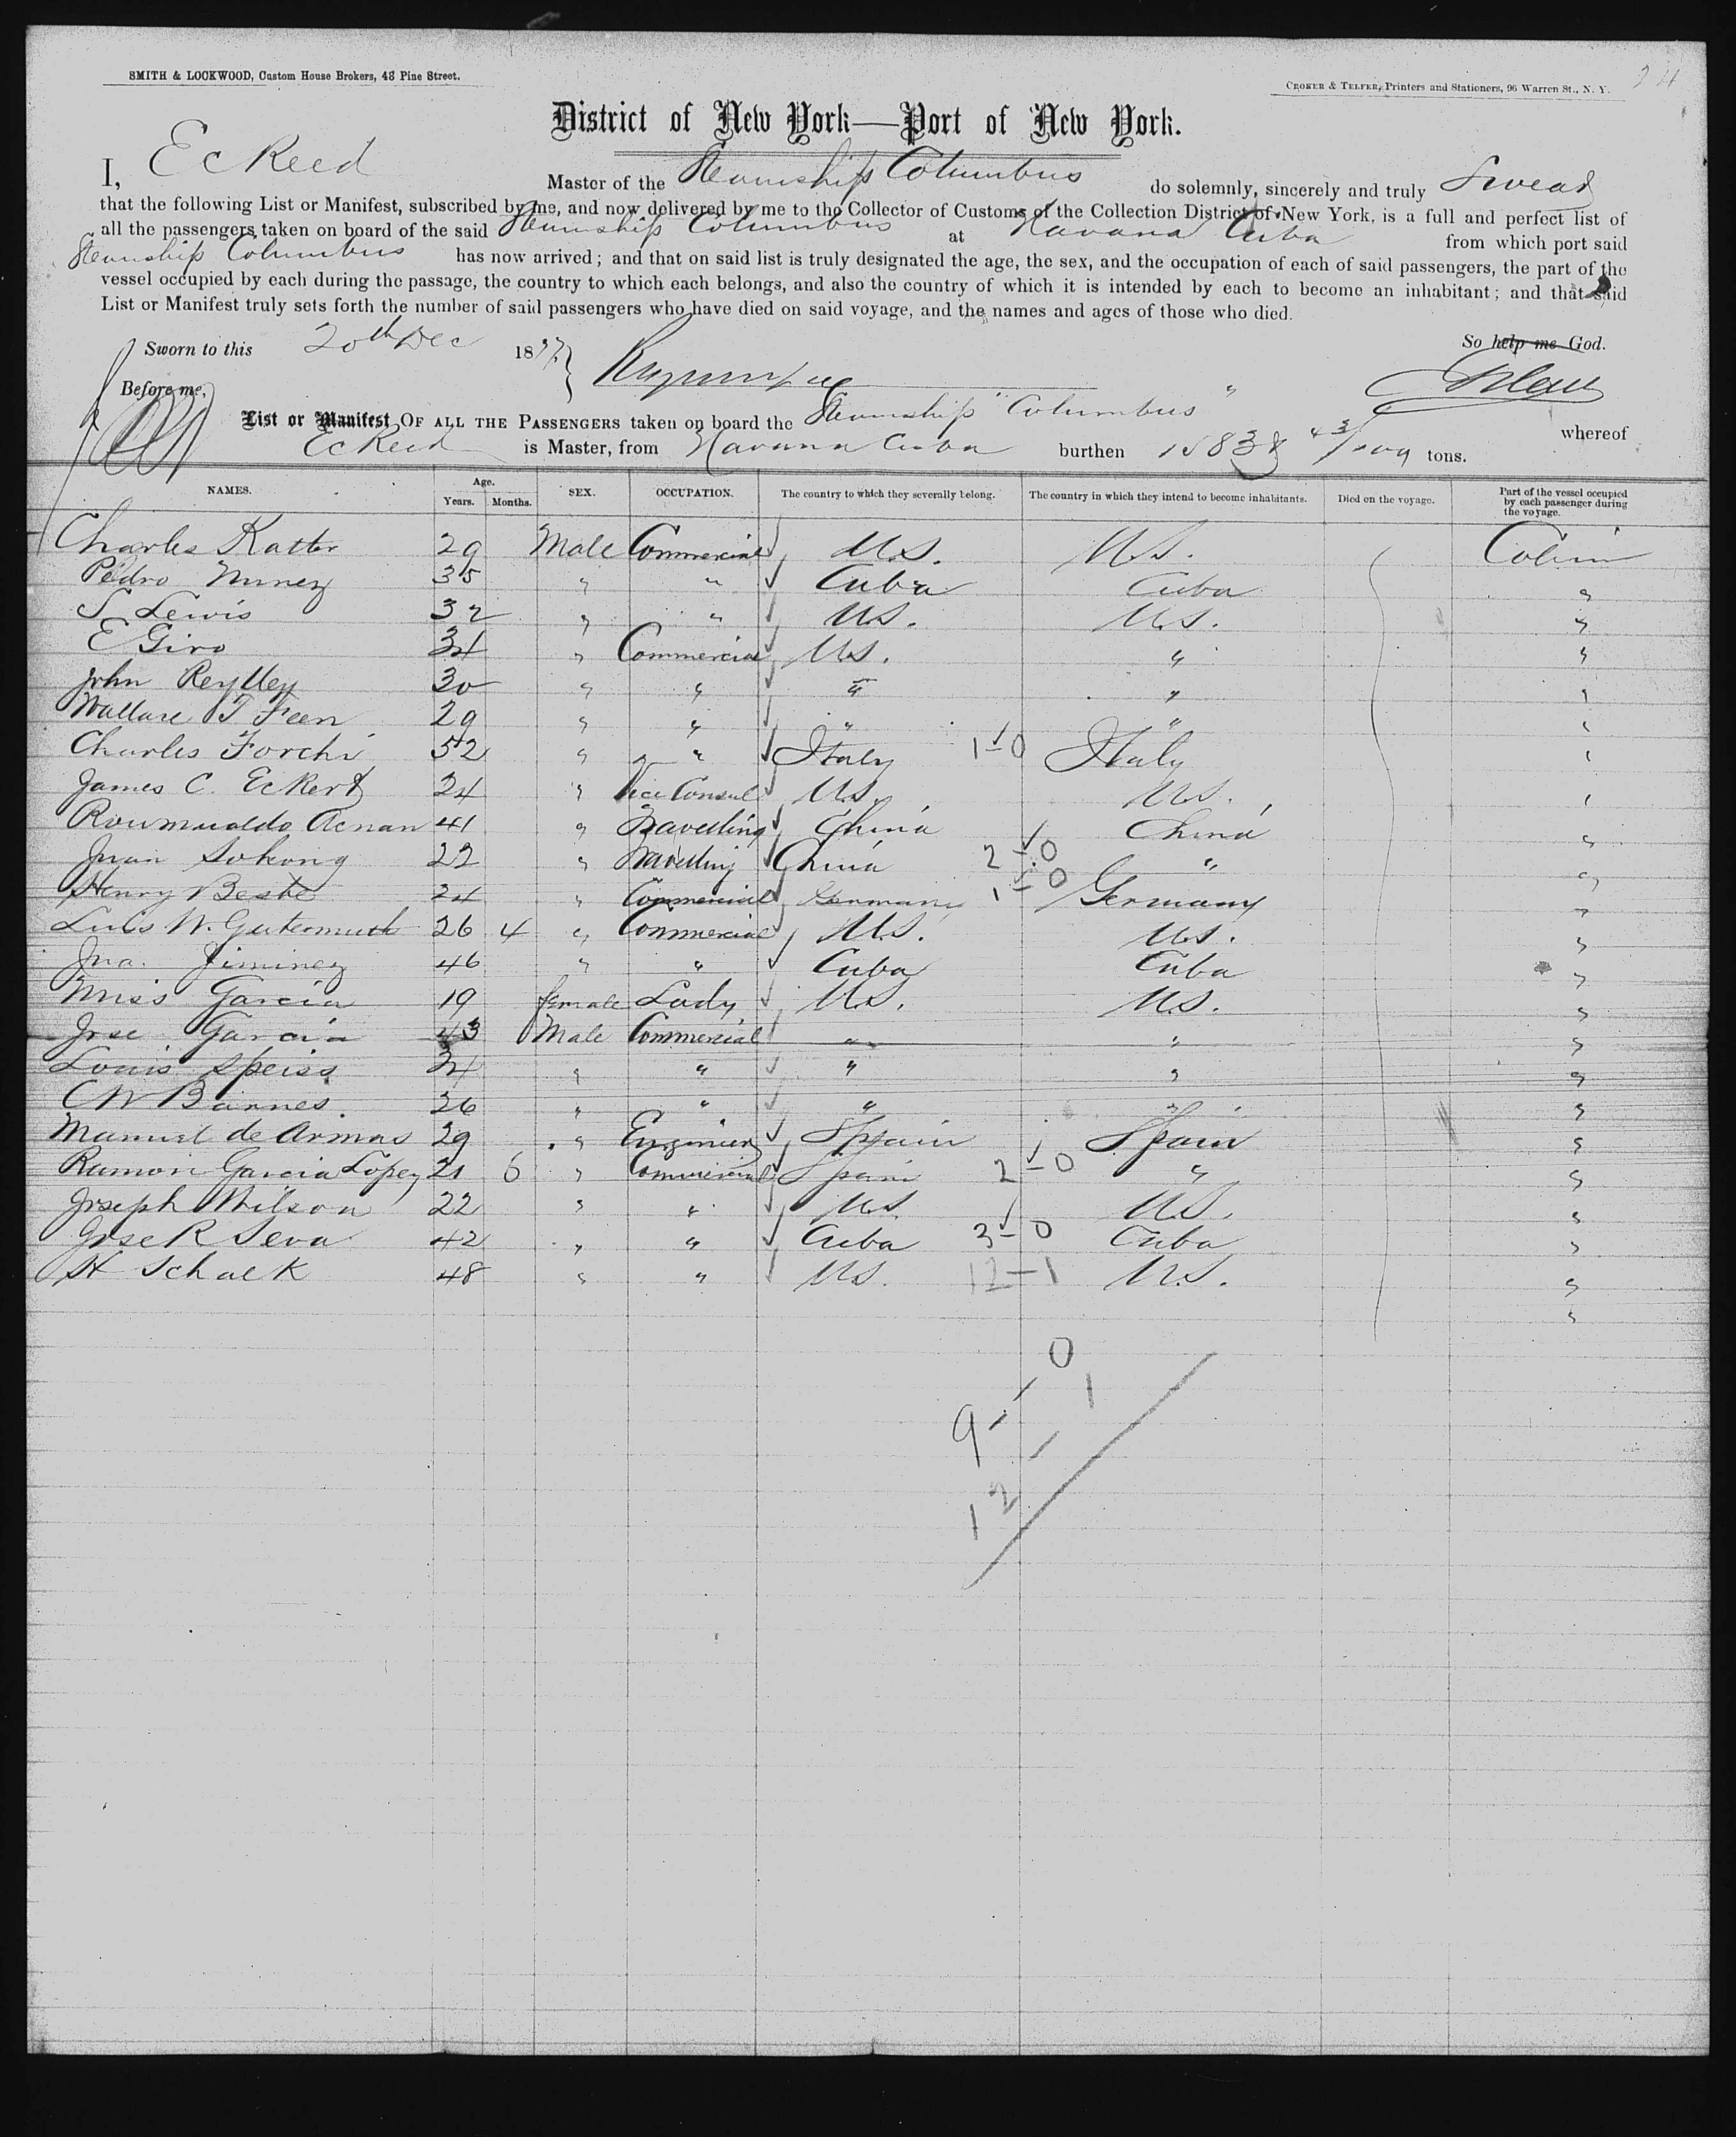 SMITH & LOCKWOOD, Custom House Brokers, 43 Pine Street.
CROKER & TELFER, Printers and Stationers, 96 Warren St., N. Y.
24
District of New York—Port of New York.
I, E C Reed Master of the Steamship Columbus do solemnly, sincerely and truly Swear
that the following List or Manifest, subscribed by me, and now delivered by me to the Collector of Customs of the Collection District of New York, is a full and perfect list of
all the passengers taken on board of the said Steamship Columbus at Havana Cuba from which port said
Steamship Columbus has now arrived; and that on said list is truly designated the age, the sex, and the occupation of each of said passengers, the part of the
vessel occupied by each during the passage, the country to which each belongs, and also the country of which it is intended by each to become an inhabitant; and that said
List or Manifest truly sets forth the number of said passengers who have died on said voyage, and the names and ages of those who died.
Sworn to this 20th Dec 1877 So help me God.
Before me,
List or Manifest OF ALL THE PASSENGERS taken on board the Steamship "Columbus" whereof
E C Reed is Master, from Havana Cuba burthen tons.
NAMES. Age. Years. Months. SEX. OCCUPATION. The country to which they severally belong. The country in which they intend to become inhabitants. Died on the voyage. Part of the vessel occupied by each passenger during the voyage.
Charles Katter 29 Male Commercial U.S. U.S. Cabin
Pedro Nunez 35 " " Cuba Cuba "
S Lewis 32 " " U.S. U.S. "
E Giro 34 " Commercial U.S. " "
John Reylley 30 " " " " "
Wallace T Feen 29 " " " " "
Charles Forchi 52 " " Italy 1-0 Italy "
James C. Eckert 24 " Vice Consul U.S. U.S. "
Roumualdo Acnan 41 " Travelling China China "
Juan Sokong 22 " Travelling China 2-0 " "
Henry Beste 24 " Commercial Germany 1-0 Germany "
Luis W. Gutermuth 26 4 " Commercial U.S. U.S. "
Jna. Jiminez 46 " " Cuba Cuba "
Miss Garcia 19 female Lady U.S. U.S. "
Jose Garcia 43 Male Commercial " " "
Louis Speiss 34 " " " " "
C W Barnes 26 " " " " "
Manuel de Armas 29 " Enginier Spain Spain "
Ramon Garcia Lopez 21 6 " Commercial Spain 2-0 " "
Joseph Wilson 22 " " U.S. U.S. "
Jose R Seva 42 " " Cuba 3-0 Cuba "
H Schalk 48 " " U.S. 12-1 U.S. "
"
9-0
12-1